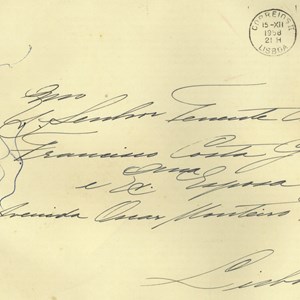 CORREIOS
15-XII
1958
21 H
LISBOA
Exmo
Senhor Tenente
Francisco Costa G
e Exma Esposa
Avenida Oscar Monteiro
Lisbo